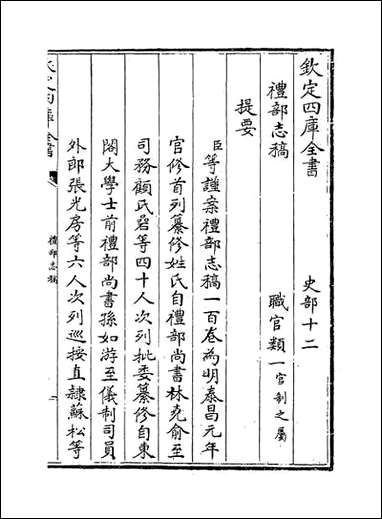 欽定四庫全書 史部十二
禮部志稿 職官類一官制之屬
提要
臣等謹案禮部志稿一百卷為明泰昌元年
官修首列纂修姓氏自禮部尚書林堯俞至
司務顧民碞等四十人次列批委纂修自東
閣大學士前禮部尚書孫如游至儀制司員
外郎張光房等六人次列巡按直隸蘇松等
欽定四庫全書
禮部志稿
一